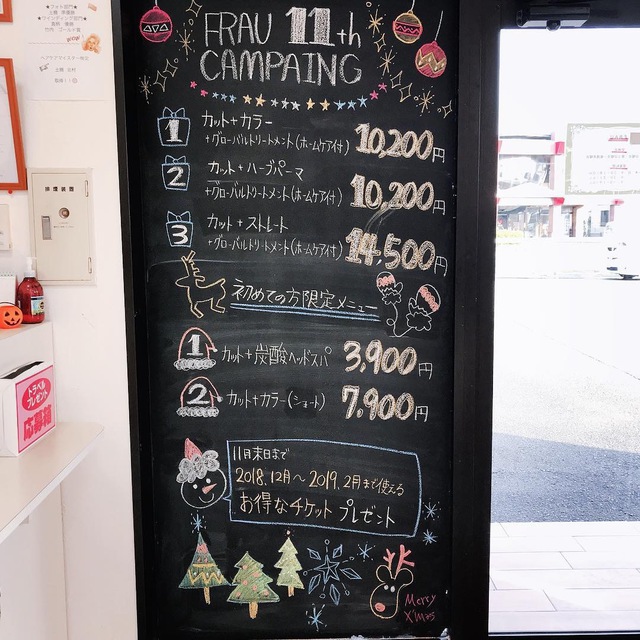 FRAU 11th
CAMPAING
1 カット+カラー
+グローバルトリートメント(ホームケア付) 10,200円
2 カット+ハーブパーマ
+グローバルトリートメント(ホームケア付) 10,200円
3 カット+ストレート
+グローバルトリートメント(ホームケア付) 14,500円
初めての方限定メニュー
1 カット+炭酸ヘッドスパ 3,900円
2 カット+カラー(ショート) 7,900円
11月末日まで
2018.12月~2019.2月まで使える
お得なチケット プレゼント
Merry
X'mas
排煙装置
トラベル
プレゼント
応募箱